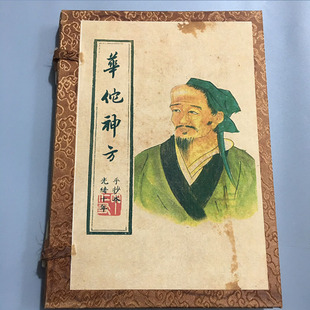 華佗神方
手抄本
光緒七年